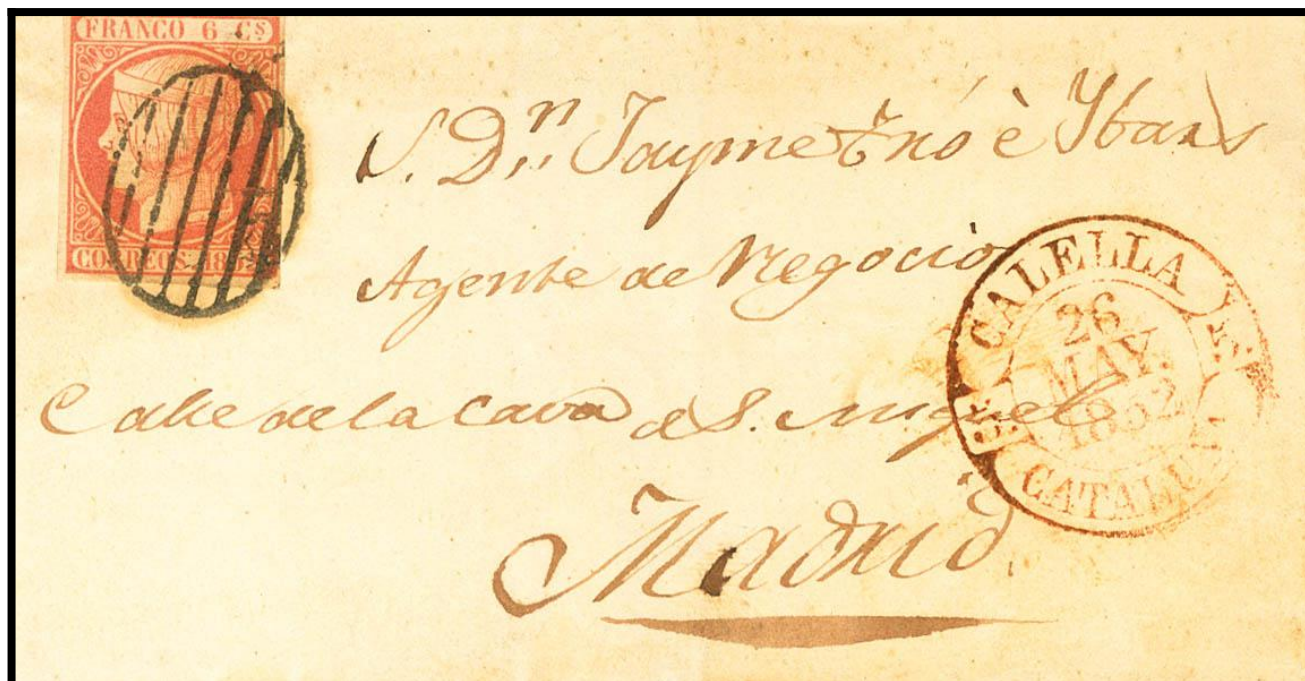 FRANCO 6 Cs
CORREOS. 18
S. Dn. Jayme è Ybars
Agente de Negocios
Calle de la Cava de S. Miguel
Madrid.
CALELLA
26
MAY.
1852
CATALU